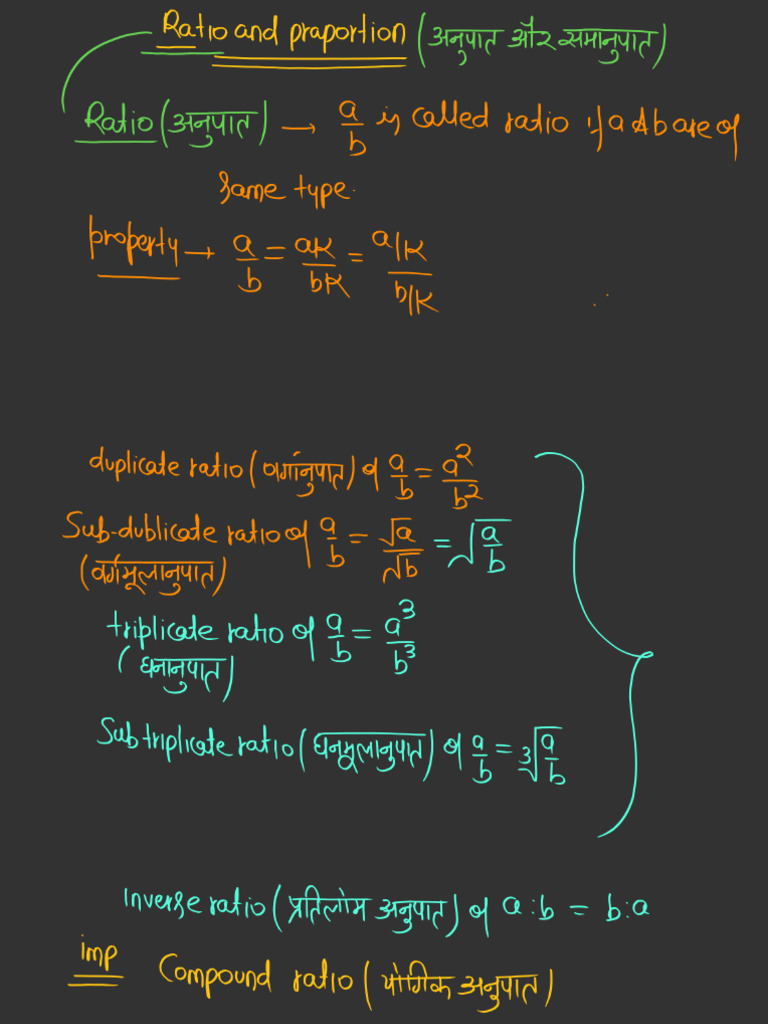 Ratio and praportion (अनुपात और समानुपात)
Ratio (अनुपात) → a/b is called ratio if a & b are of
same type.
property → a/b = aK/bK = a/K / b/K
duplicate ratio (वर्गानुपात) of a/b = a²/b²
Sub-dublicate ratio of a/b = √a/√b = √(a/b)
(वर्गमूलानुपात)
triplicate ratio of a/b = a³/b³
(घनानुपात)
Subtriplicate ratio (घनमूलानुपात) of a/b = ³√(a/b)
Inverse ratio (प्रतिलोम अनुपात) of a:b = b:a
imp Compound ratio (यौगिक अनुपात)